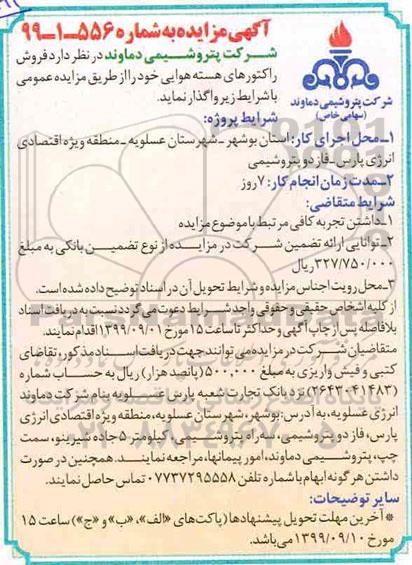 آگهی مزایده به شماره ۵۵۶-۱-۹۹
شرکت پتروشیمی دماوند
(سهامی خاص)
شرکت پتروشیمی دماوند در نظر دارد فروش
راکتورهای هسته هوایی خود را از طریق مزایده عمومی
با شرایط زیر واگذار نماید.
شرایط پروژه:
۱-محل اجرای کار: استان بوشهر-شهرستان عسلویه-منطقه ویژه اقتصادی
انرژی پارس-فاز دو پتروشیمی
۲-مدت زمان انجام کار: ۷ روز
شرایط متقاضی:
۱-داشتن تجربه کافی مرتبط با موضوع مزایده
۲-توانایی ارائه تضمین شرکت در مزایده از نوع تضمین بانکی به مبلغ
۳۲۷/۷۵۰/۰۰۰ ریال
۳-محل رویت اجناس مزایده و شرایط تحویل آن در اسناد توضیح داده شده است.
از کلیه اشخاص حقیقی و حقوقی واجد شرایط دعوت می گردد نسبت به دریافت اسناد
بلافاصله پس از چاپ آگهی و حداکثر تا ساعت ۱۵ مورخ ۱۳۹۹/۰۹/۰۱ اقدام نمایند.
متقاضیان شرکت در مزایده می توانند جهت دریافت اسناد مذکور، تقاضای
کتبی و فیش واریزی به مبلغ ۵۰۰,۰۰۰ (پانصد هزار) ریال به حساب شماره
(۲۶۴۳۰۴۱۴۸۳) نزد بانک تجارت شعبه پارس عسلویه بنام شرکت دماوند
انرژی عسلویه، به آدرس: بوشهر، شهرستان عسلویه، منطقه ویژه اقتصادی انرژی
پارس، فاز دو پتروشیمی، سه راه پتروشیمی، کیلومتر ۵ جاده شیرینو، سمت
چپ، پتروشیمی دماوند، امور پیمانها، مراجعه نمایند. همچنین در صورت
داشتن هر گونه ابهام با شماره تلفن ۰۷۷۳۷۲۹۵۵۵۸ تماس حاصل نمایند.
سایر توضیحات:
* آخرین مهلت تحویل پیشنهادها (پاکت های «الف»، «ب» و «ج») ساعت ۱۵
مورخ ۱۳۹۹/۰۹/۱۰ می باشد.